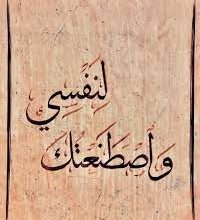 وَاصْطَنَعْتُكَ
لِنَفْسِي